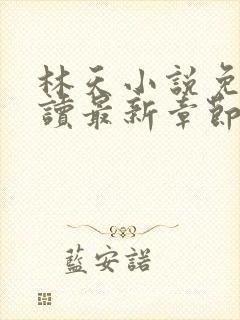 林天小說免
讀最新章節
藍安諾